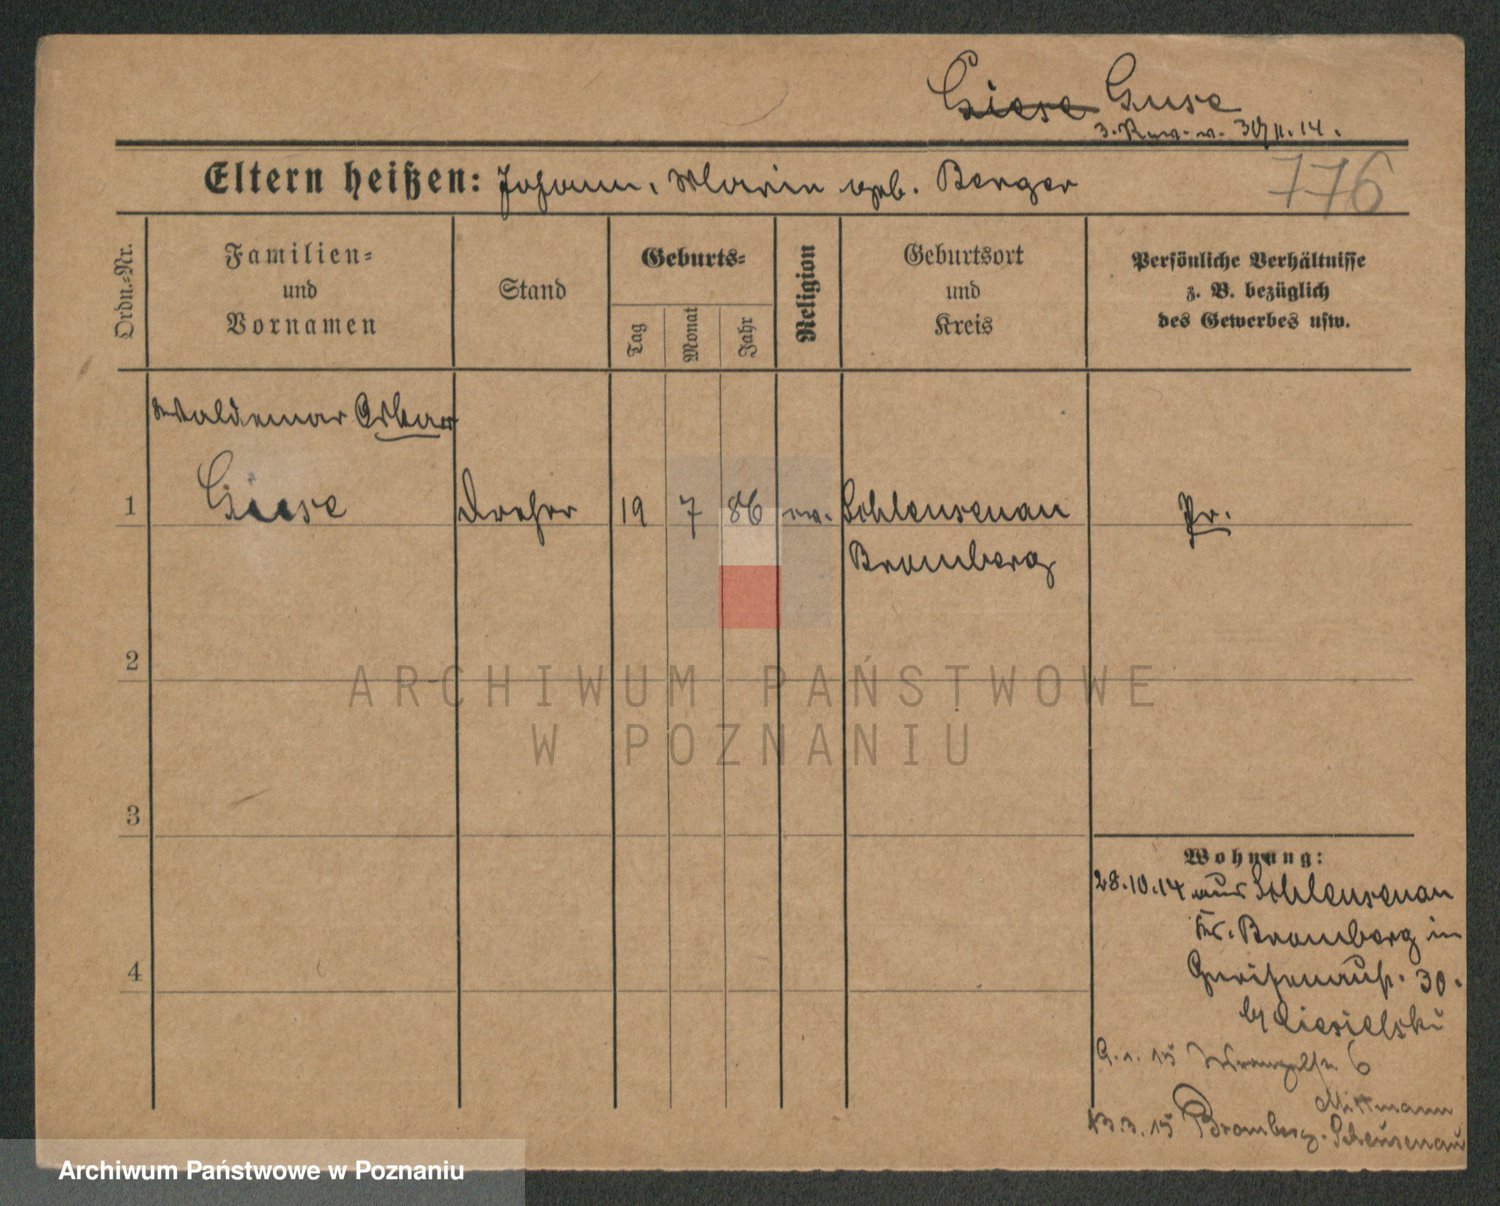 Giese Guse
3. Rev. v. 30/11. 14.
Eltern heißen: Johann, Marie geb. Berger
776
Ordn.-Nr.
Familien-
und
Vornamen
Stand
Geburts-
Tag
Monat
Jahr
Religion
Geburtsort
und
Kreis
Persönliche Verhältnisse
z. B. bezüglich
des Gewerbes usw.
Waldemar Oskar
1 Giese Dreher 19 7 86 ev. Schleusenau Pr.
Bromberg
2
ARCHIWUM PAŃSTWOWE
W POZNANIU
3
Wohnung:
28.10.14 aus Schleusenau
Kr. Bromberg in
4
30.
b/ Ciesielski
15 Wrangelstr. 6
Mittmann
15 Bromberg-Schleusenau
Archiwum Państwowe w Poznaniu